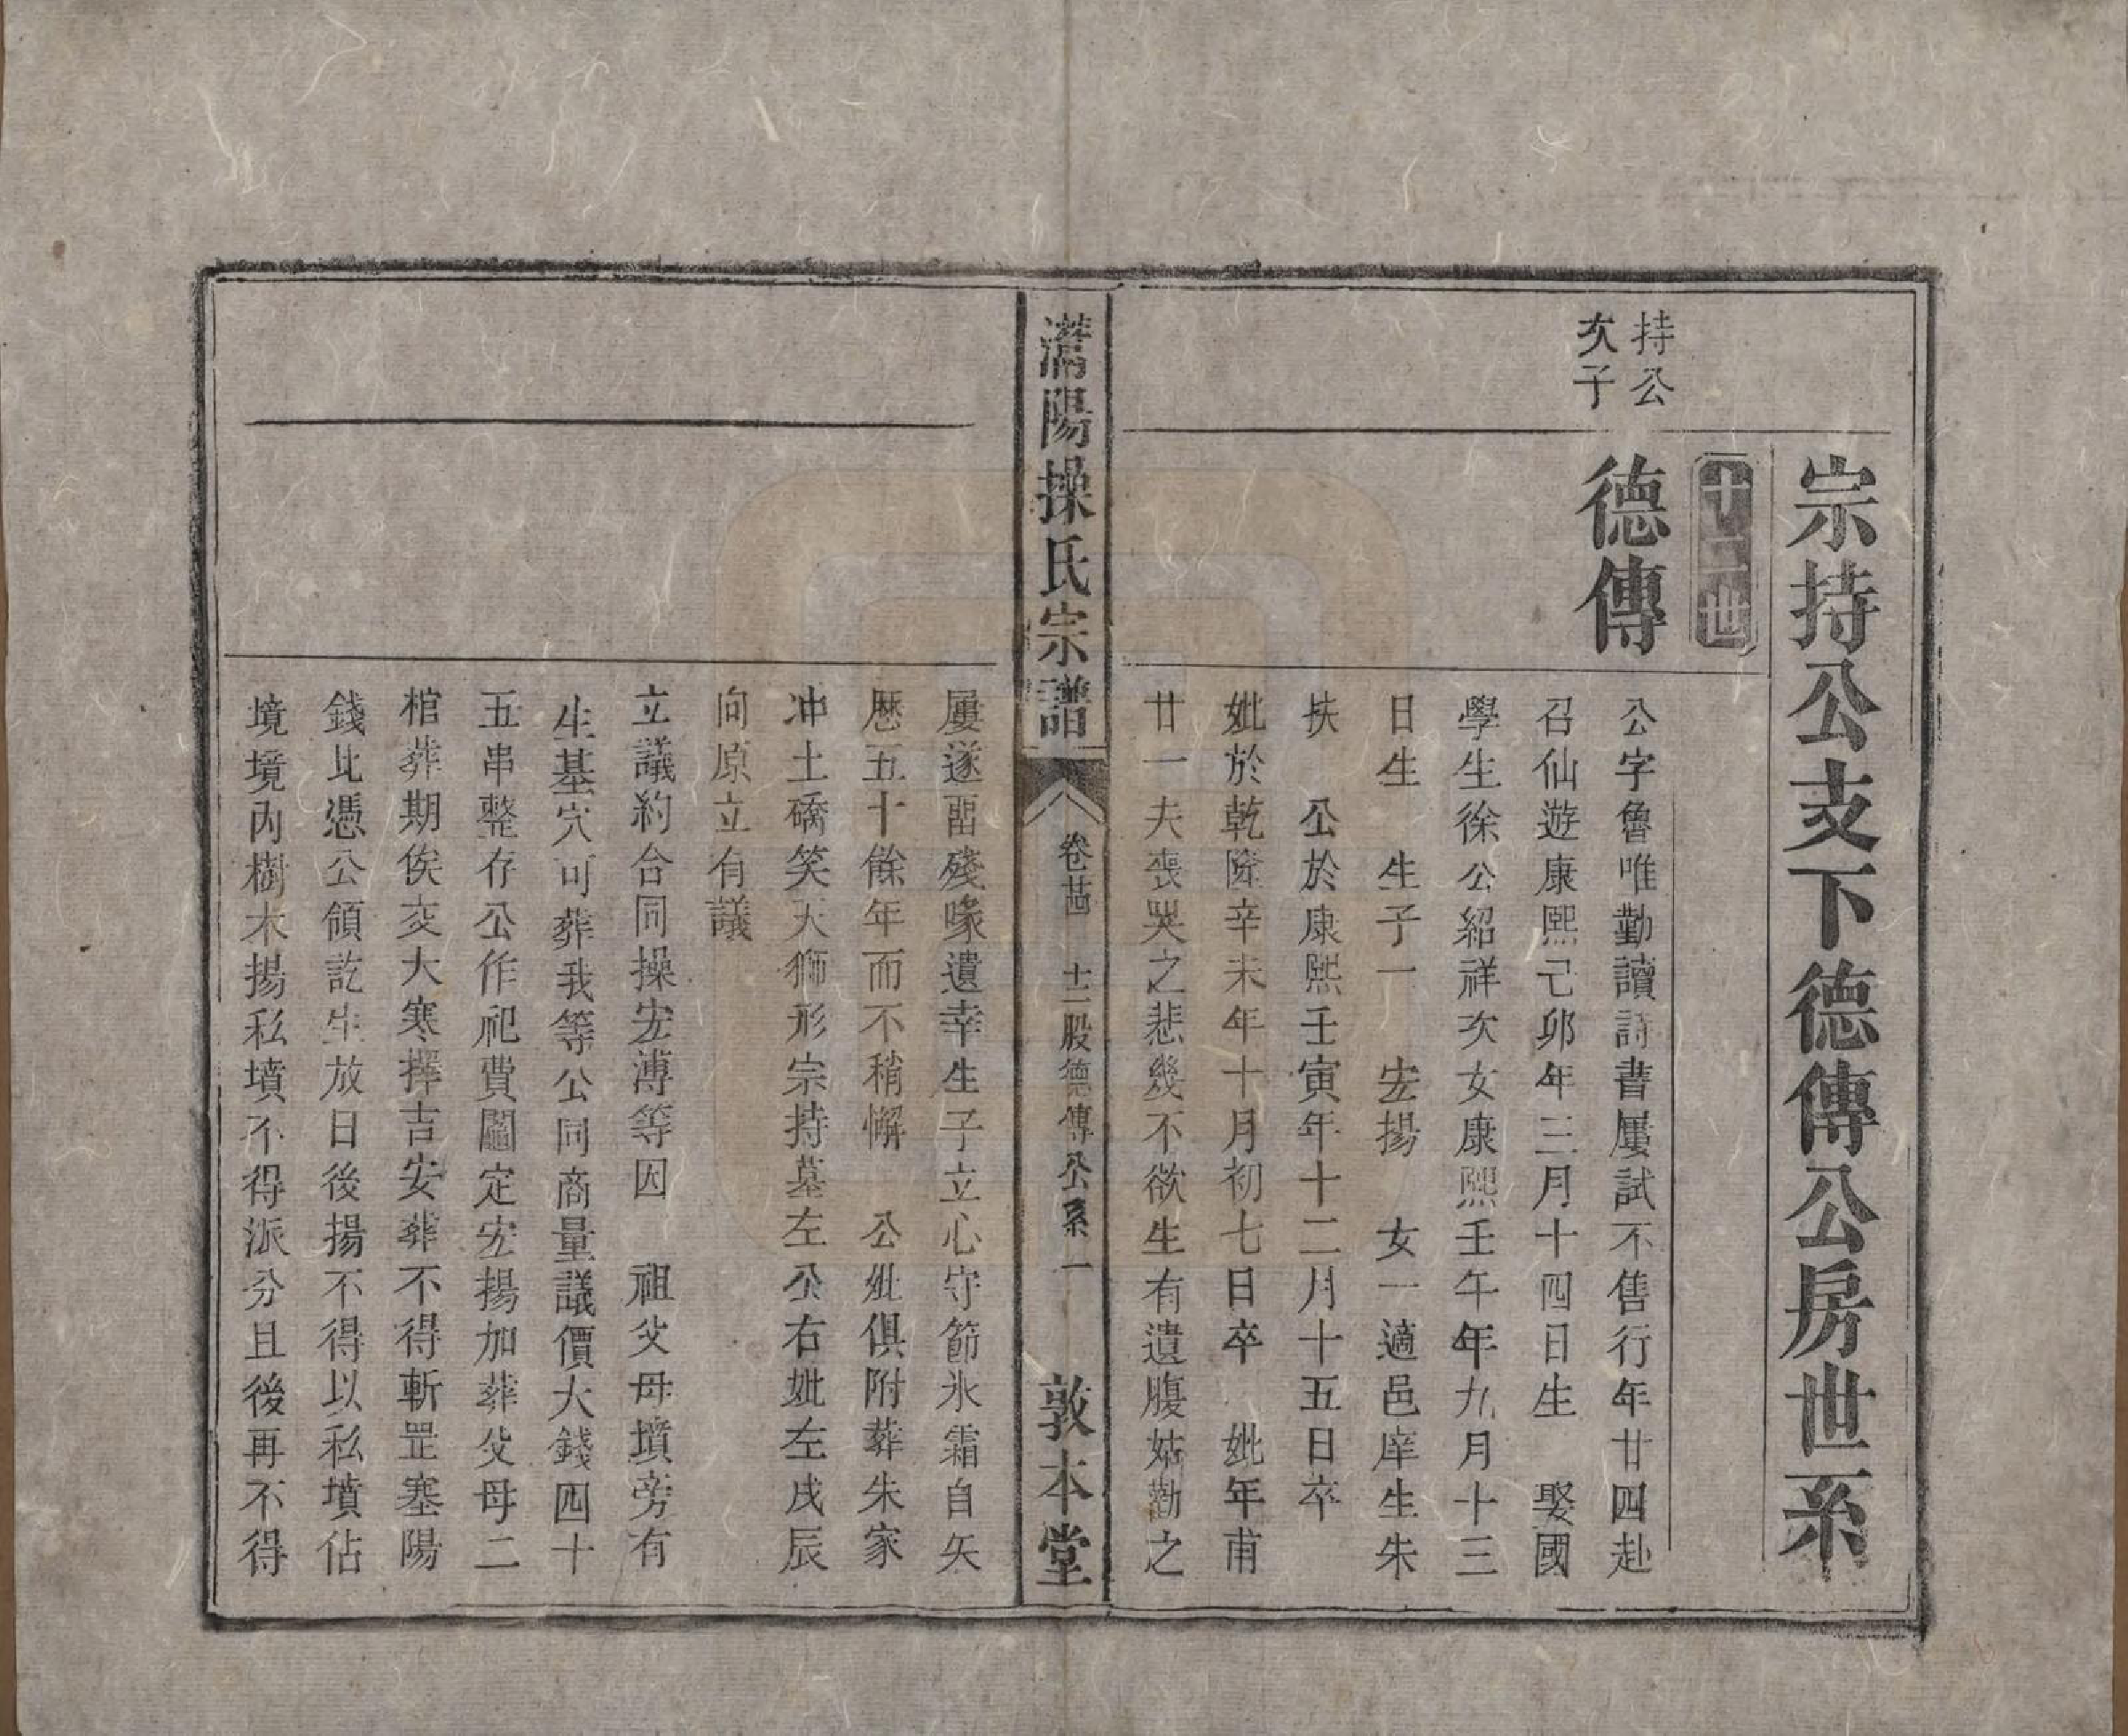 宗持公支下德傳公房世系
十二世
持公
次子
德傳
公字魯唯勤讀詩書屢試不售行年廿四赴
召仙遊康熙己卯年三月十四日生　娶國
學生徐公紹祥次女康熙壬午年九月十三
日生　生子一　宏揚　女一適邑庠生朱
扶　公於康熙壬寅年十二月十五日卒
妣於乾隆辛未年十月初七日卒　妣年甫
廿一夫喪哭之悲幾不欲生有遺腹姑勸之
灊陽操氏宗譜
卷廿四　十二股德傳公系一
敦本堂
屢遂畱殘喙遺幸生子立心守節氷霜自矢
歷五十餘年而不稍懈　公妣俱附葬朱家
冲土礄笑天獅形宗持墓左公右妣左戌辰
向原立有議
立議約合同操宏溥等因　祖父母墳旁有
生基穴可葬我等公同商量議價大錢四十
五串整存公作祀費鬮定宏揚加葬父母二
棺葬期俟交大寒擇吉安葬不得斬罡塞陽
錢比憑公領訖生放日後揚不得以私墳佔
境境內樹木揚私墳不得派分且後再不得